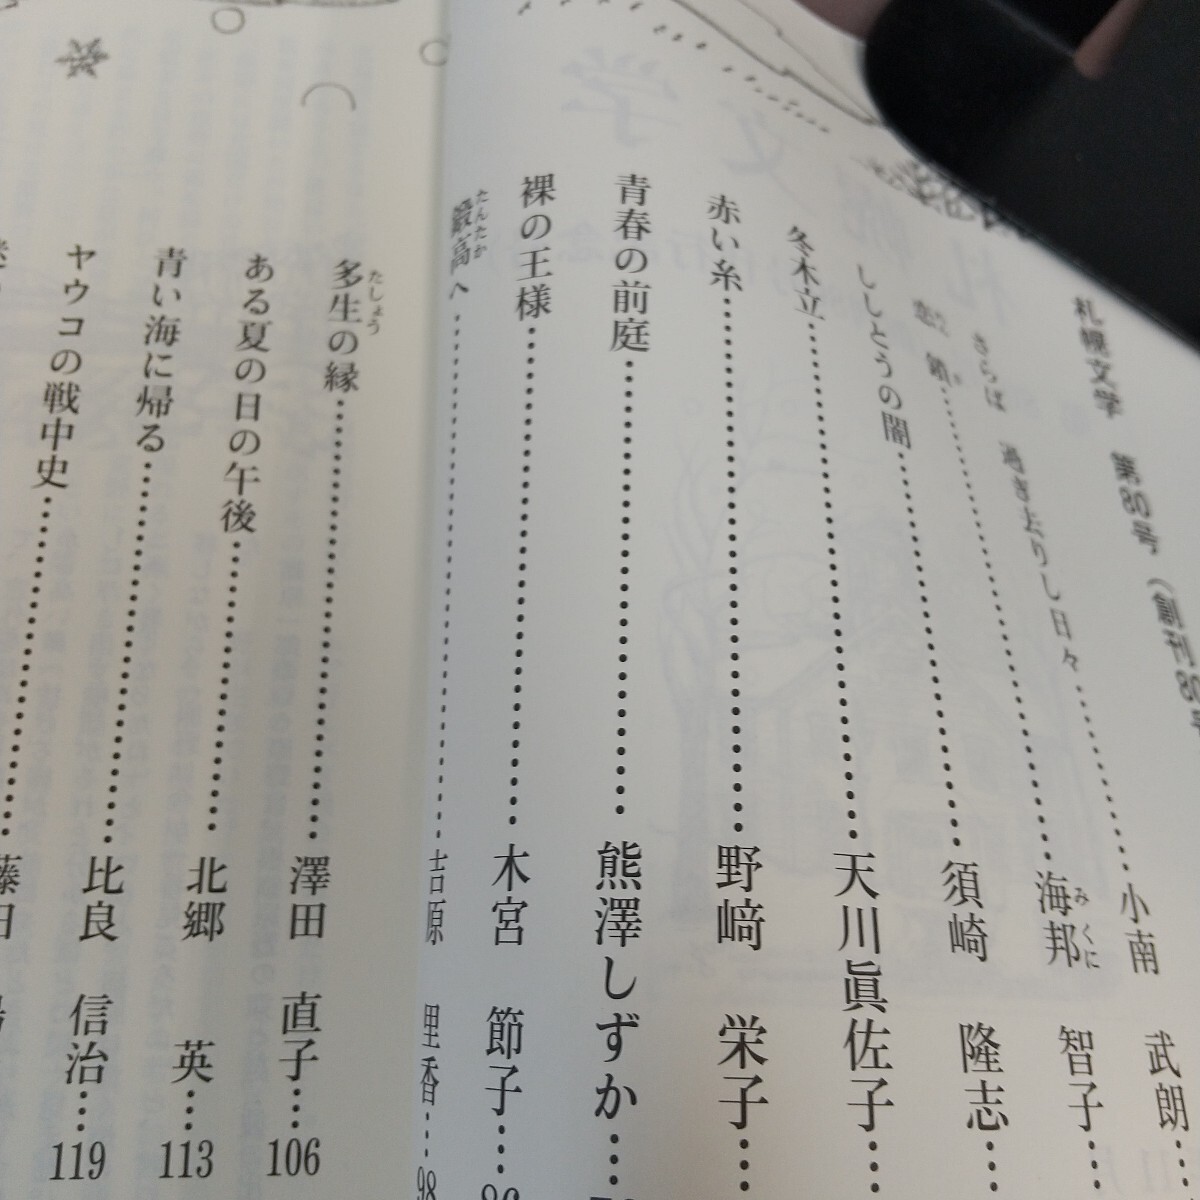 札幌文学　第80号　（創刊80
さらば　過ぎ去りし日々…………小南　武朗…
海邦　智子…
みくに
ししとうの闇…………須崎　隆志…
冬木立…………天川眞佐子…
赤い糸…………野﨑　栄子…
青春の前庭…………熊澤しずか…
裸の王様…………木宮　節子…
鍛高へ…………吉原　里香…98
たんたか
多生の縁…………澤田　直子…106
たしょう
ある夏の日の午後…………北郷　英…113
青い海に帰る…………比良　信治…119
ヤウコの戦中史…………藤田